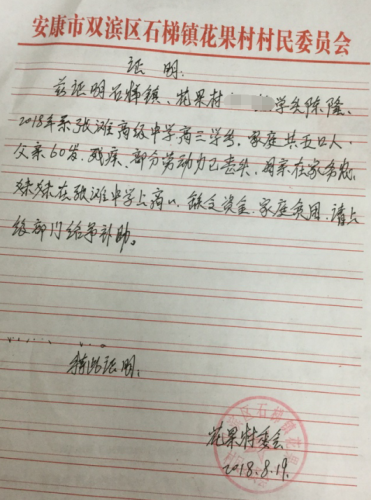 安康市双滨区石梯镇花果村村民委员会
证 明
兹证明石梯镇、花果村 学生陈隆、
2018年系张滩高级中学高三学号，家庭共五口人，
父亲60岁、残疾、部分劳动力已丧失，母亲在家务农，
妹妹在张滩中学上高一，缺乏资金、家庭贫困，请上
级部门给予补助。
特此证明、
区石梯镇
花果村委会
2018.8.19.